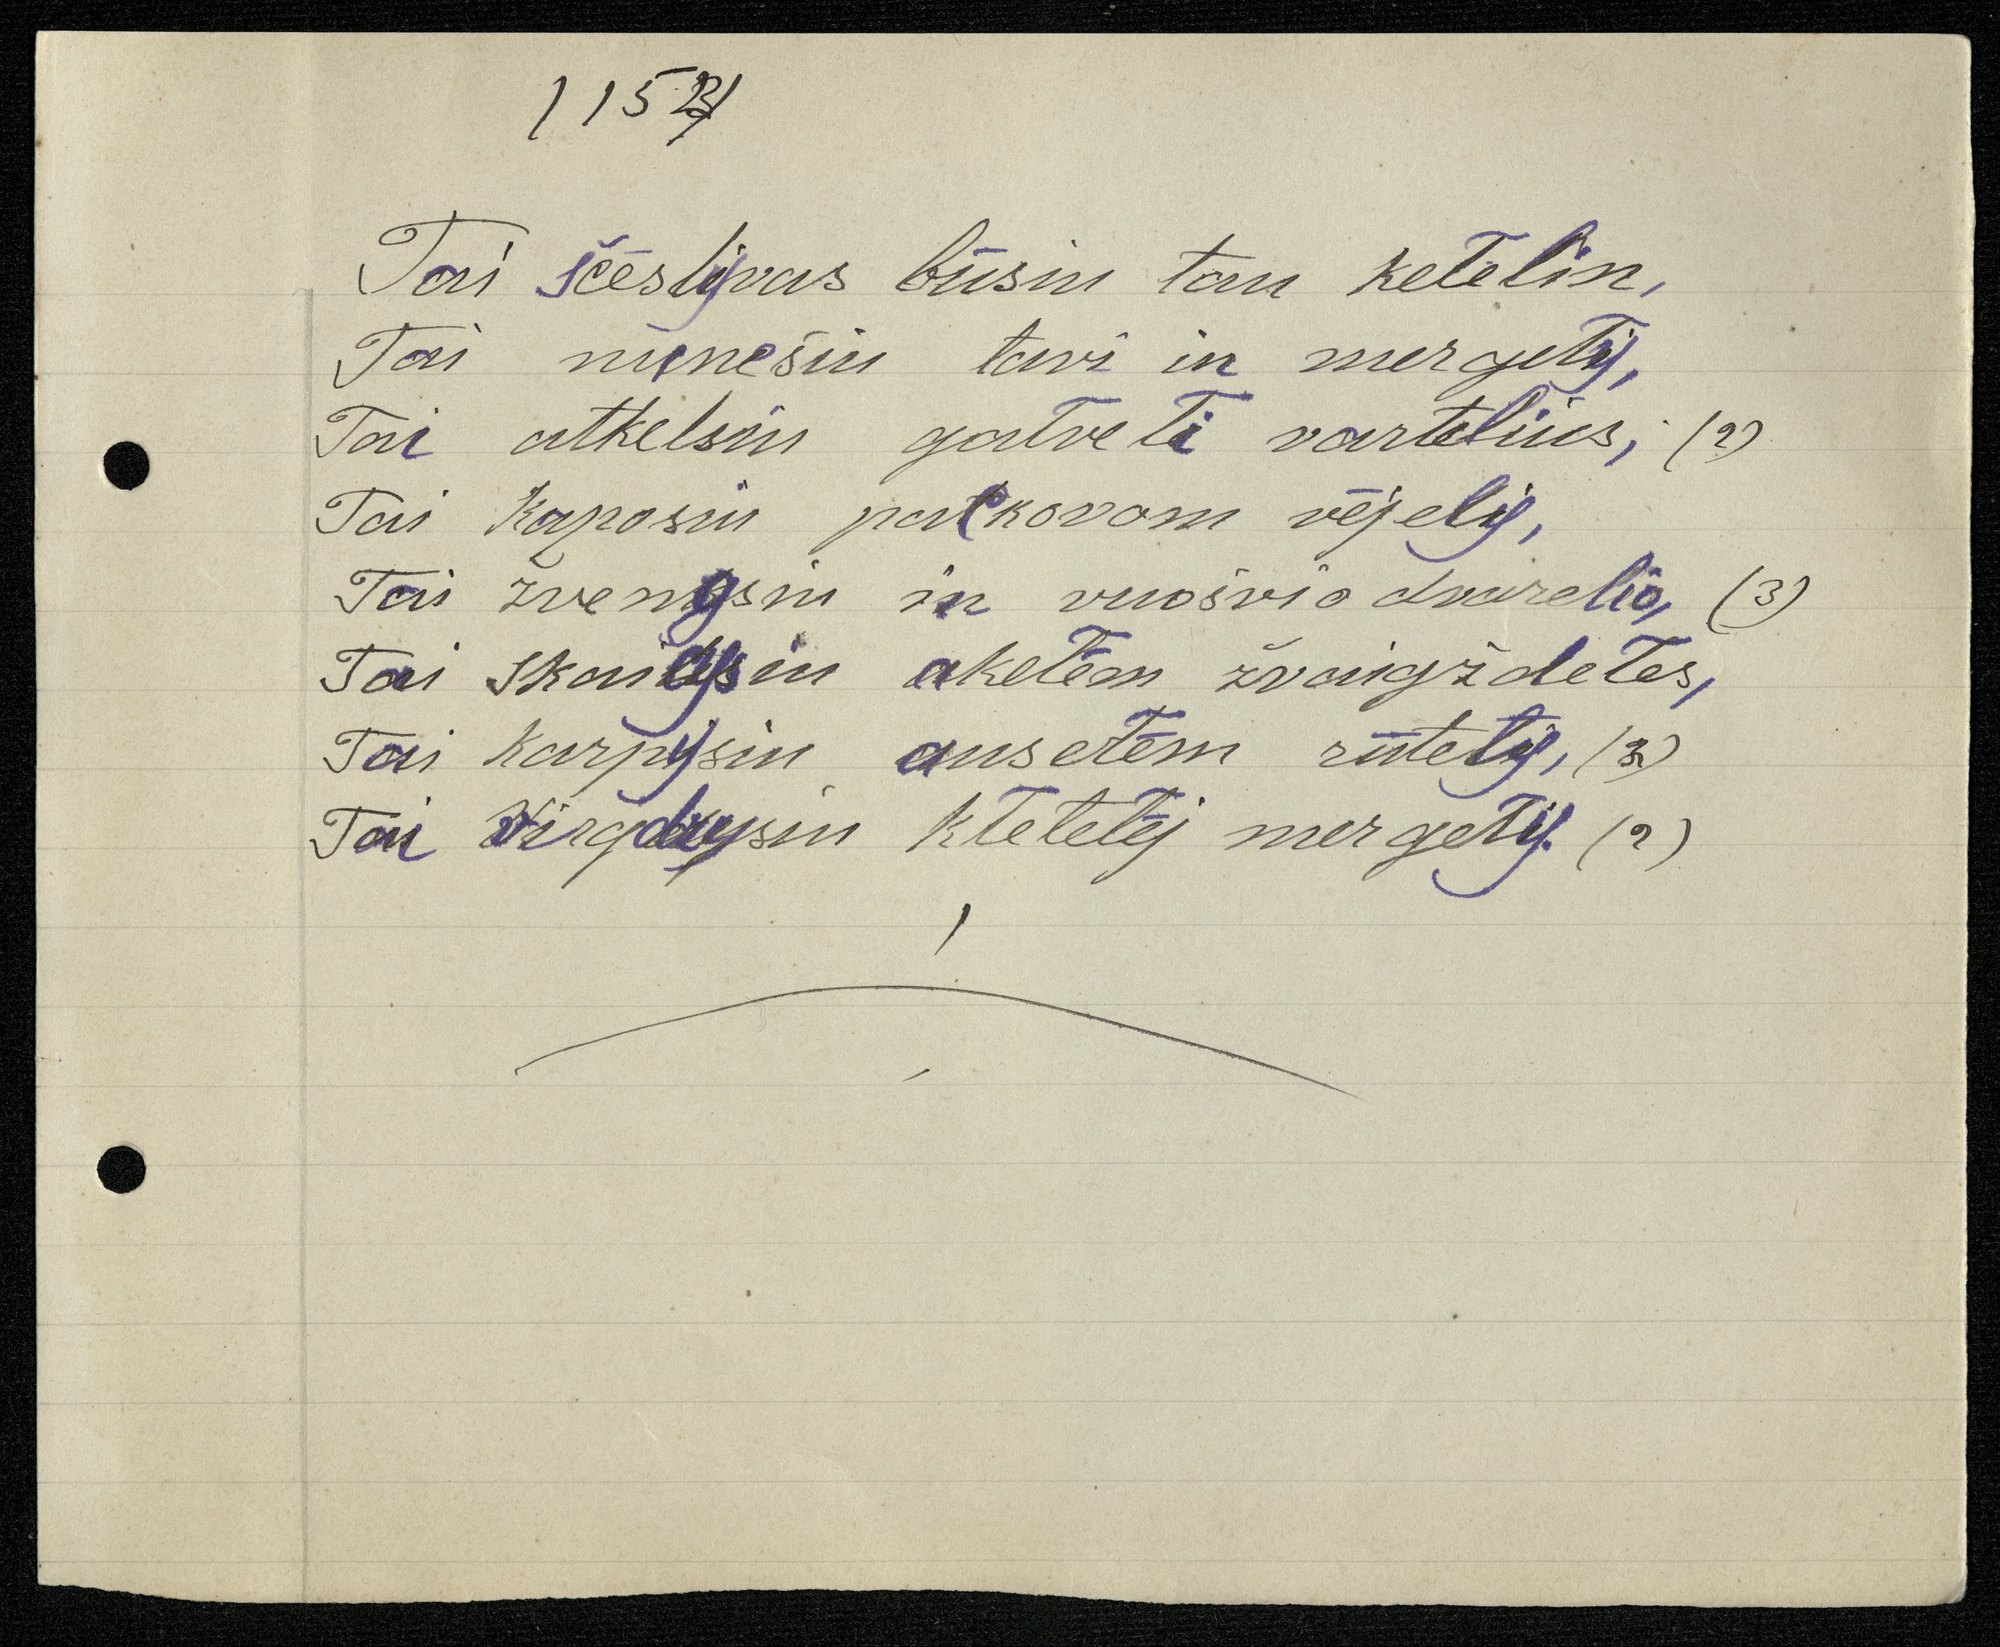 Tai ščėslyvas būsiu tau kełėlin,
Tai nunešiu tavi in mergełį,
Tai atkelsiu gatvełi vartelius, (2)
Tai kaposiu patkovom vėjelį,
Tai žvengsiu in vuošvio dvarelio, (3)
Tai skaitysiu akełėm žvaigždełes,
Tai karpysiu ausełėm rūtelį, (3)
Tai virgdysiu kłetełėj mergełį. (2)